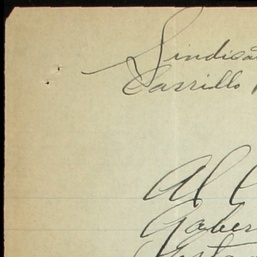 Sindica
Carrillo
Al
Gober